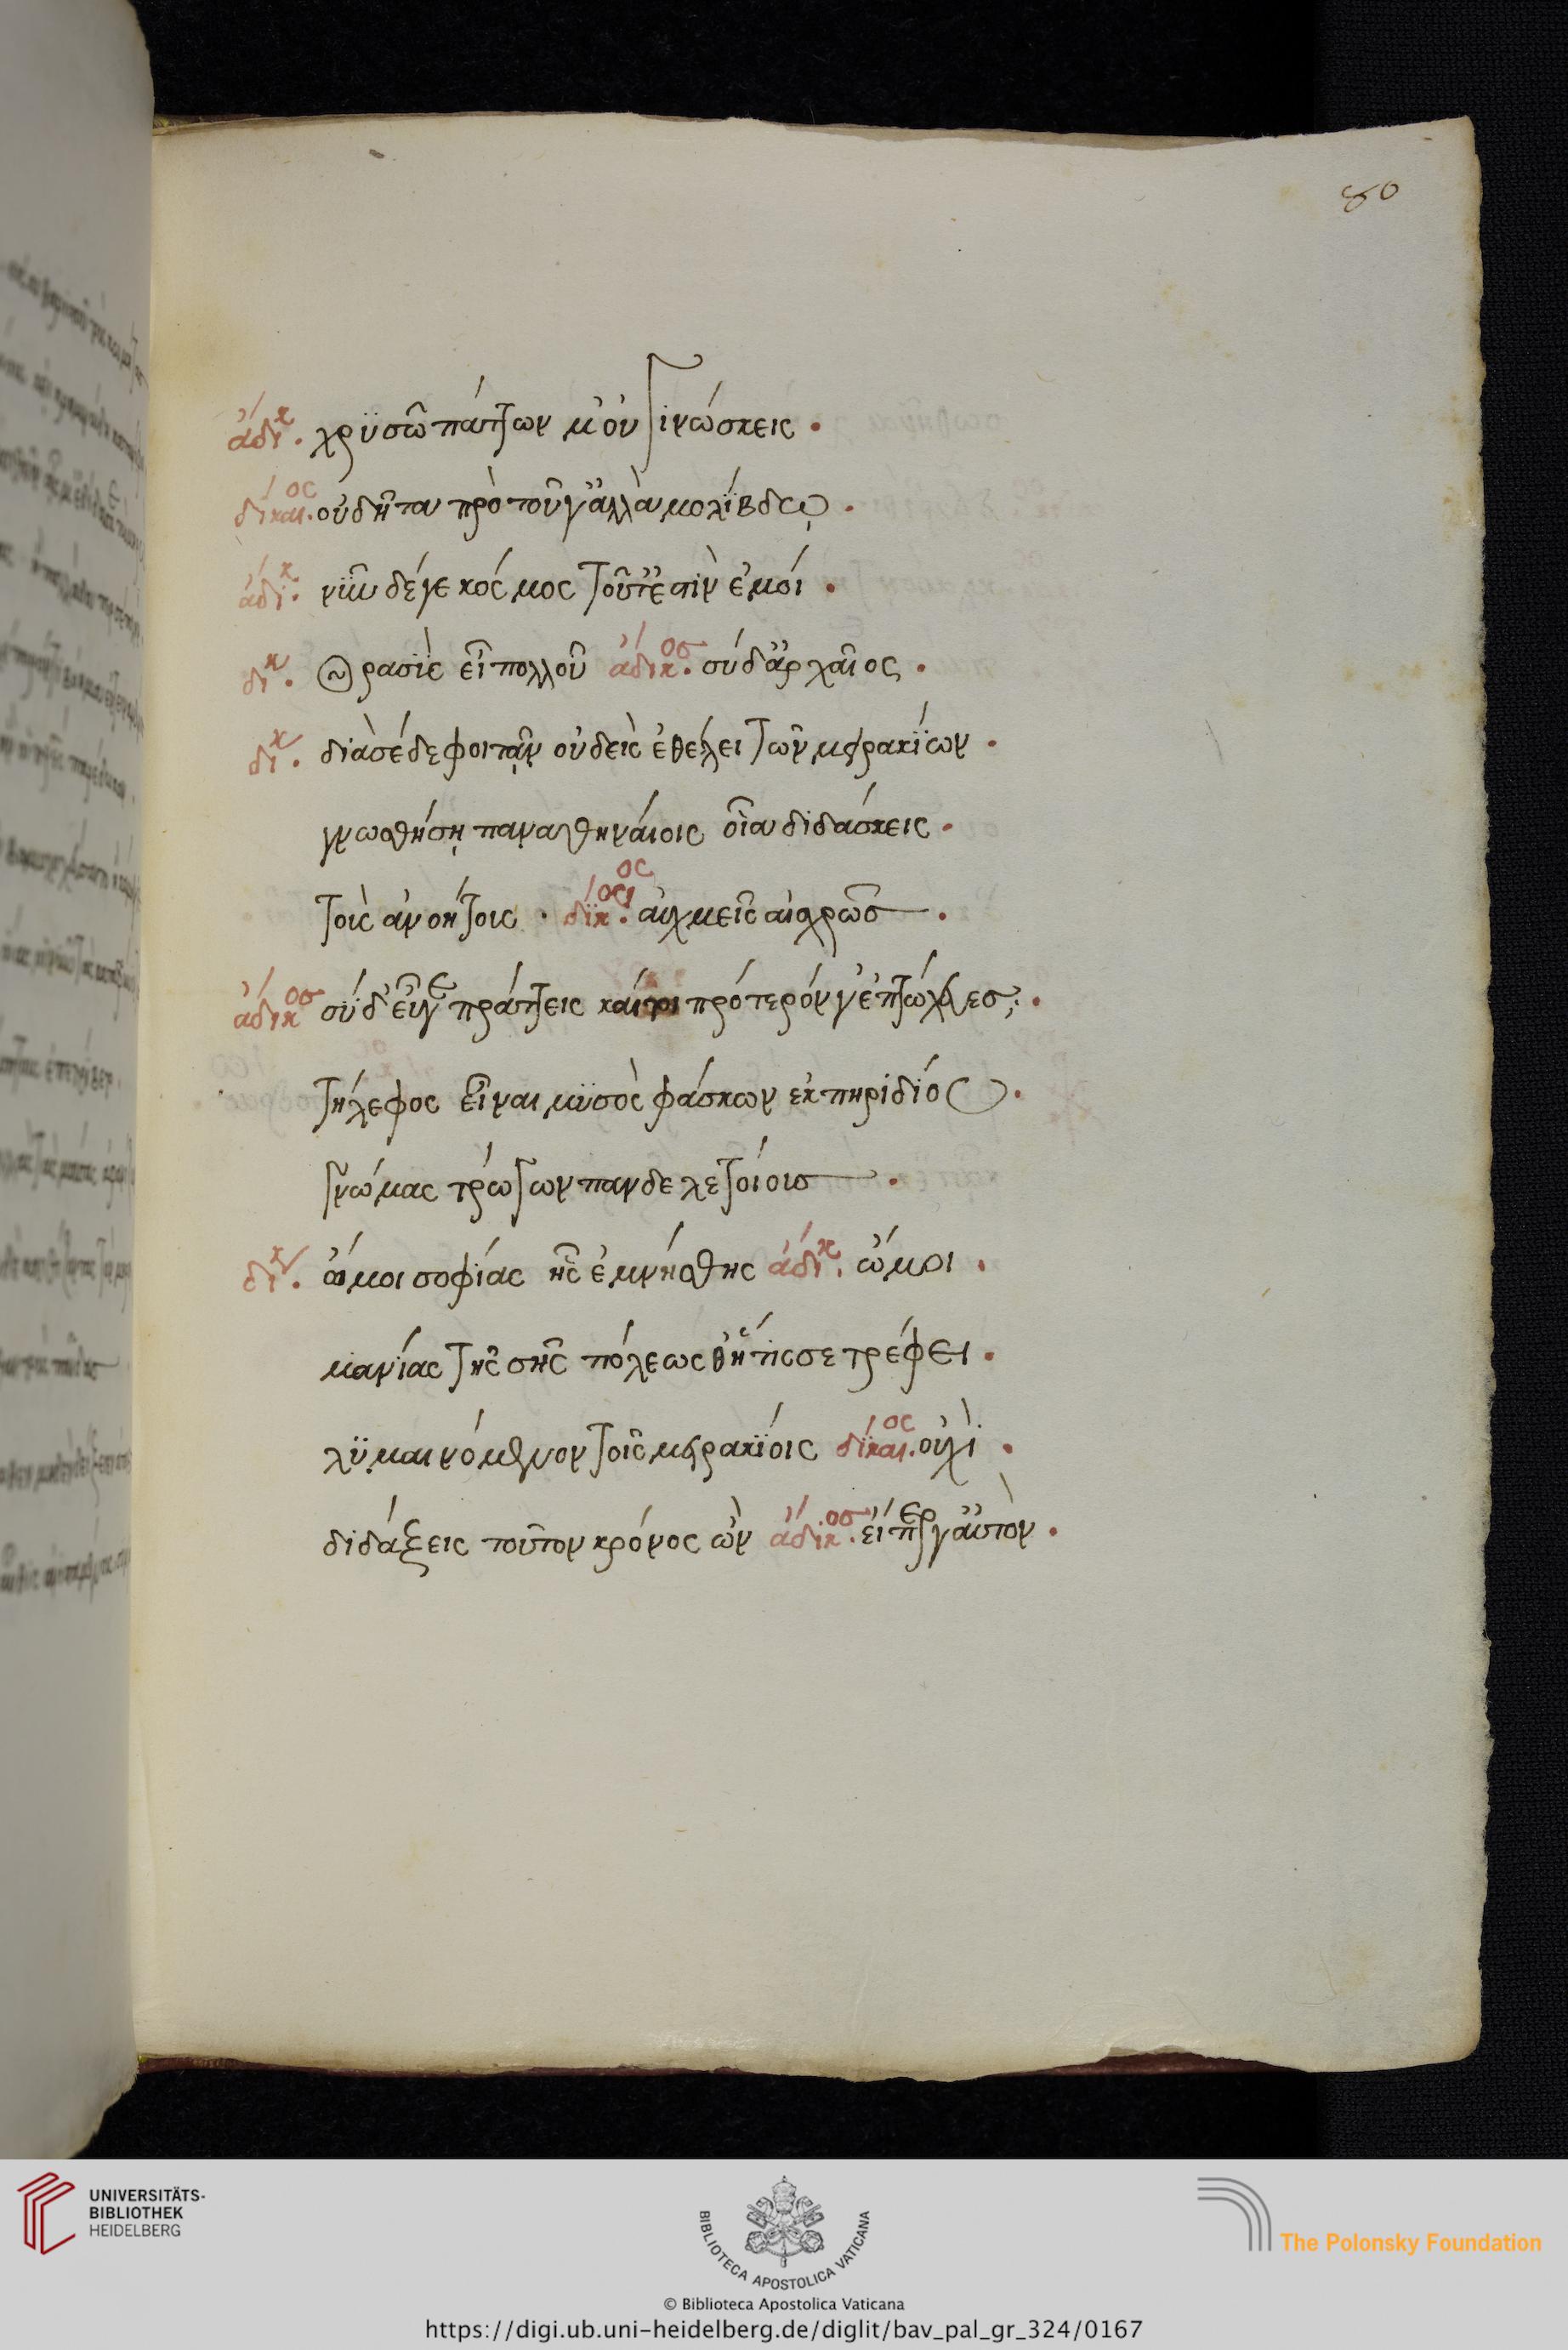 80
ἄδικ. χρϋσῶ πάττων μ' οὐ γινώσκεις.
δίκαιος. οὐ δῆτα πρὸ τοῦ γ' ἀλλὰ μολίβδω.
ἄδικ. νῦν δέ γε κόσμος τοῦτ' ἐστὶν ἐμοί.
δικ. θρασὺς εἶ πολλοῦ ἄδικος. σύ δ' ἀρχαῖος.
δικ. διὰ σέ δε φοιτᾶν οὐδεὶς ἐθέλει τῶν μειρακίων.
γνωσθήση παναθηναίοις οἷα διδάσκεις.
τοὶς ἀνοήτοις. δίκαιος. αὐχμεῖς αἰσχρῶς.
ἄδικος σύ δ' εὖγε πράττεις καίτοι πρότερόν γ' ἐπτώχευες.
τήλεφος εἶναι μυσὸς φάσκων ἐκ πηριδίου.
γνώμας τρώγων πανδελετοίους.
δικ. ὤμοι σοφίας ἧς ἐμνήσθης ἄδικ. ὤμοι.
μανίας τῆς σῆς πόλεως θ' ἥτις σε τρέφει.
λϋμαινόμενον τοῖς μειρακίοις δίκαιος. οὐχὶ.
διδάξεις τοῦτον κρόνος ὢν ἄδικος. εἴπερ γ' αὐτὸν.
UNIVERSITÄTS-
BIBLIOTHEK
HEIDELBERG
BIBLIOTECA APOSTOLICA VATICANA
The Polonsky Foundation
© Biblioteca Apostolica Vaticana
https://digi.ub.uni-heidelberg.de/diglit/bav_pal_gr_324/0167